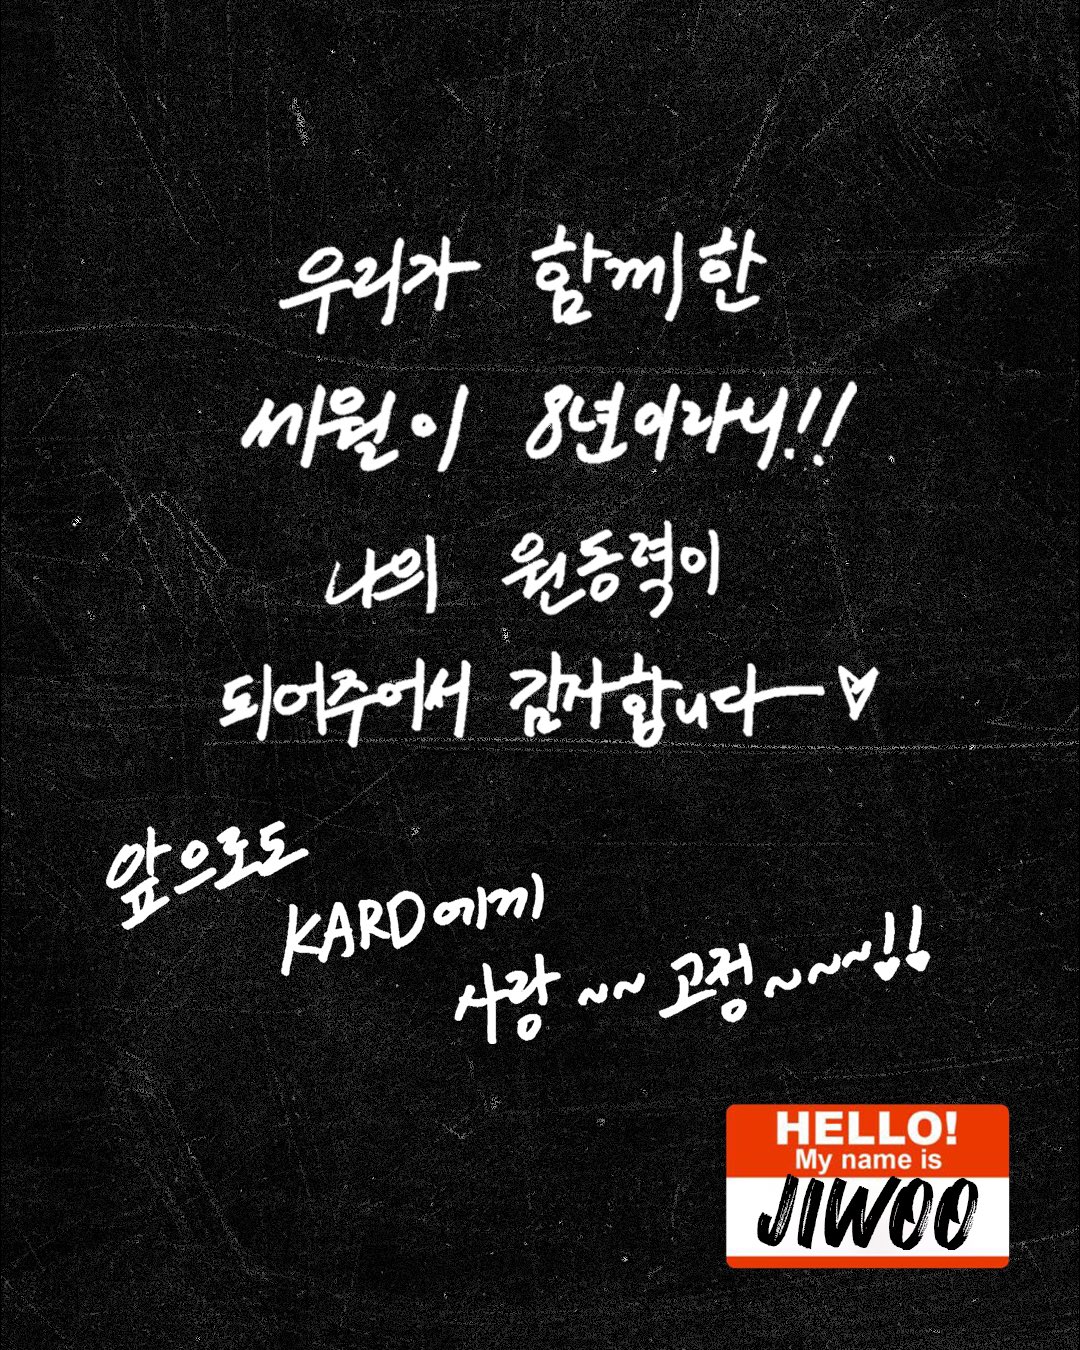 우리가 함께한
세월이 8년이라니!!
나의 원동력이
되어주어서 감사합니다ㅡ♡
앞으로도
KARD에게
사랑~~고정~~~!!
HELLO!
My name is
JIWOO